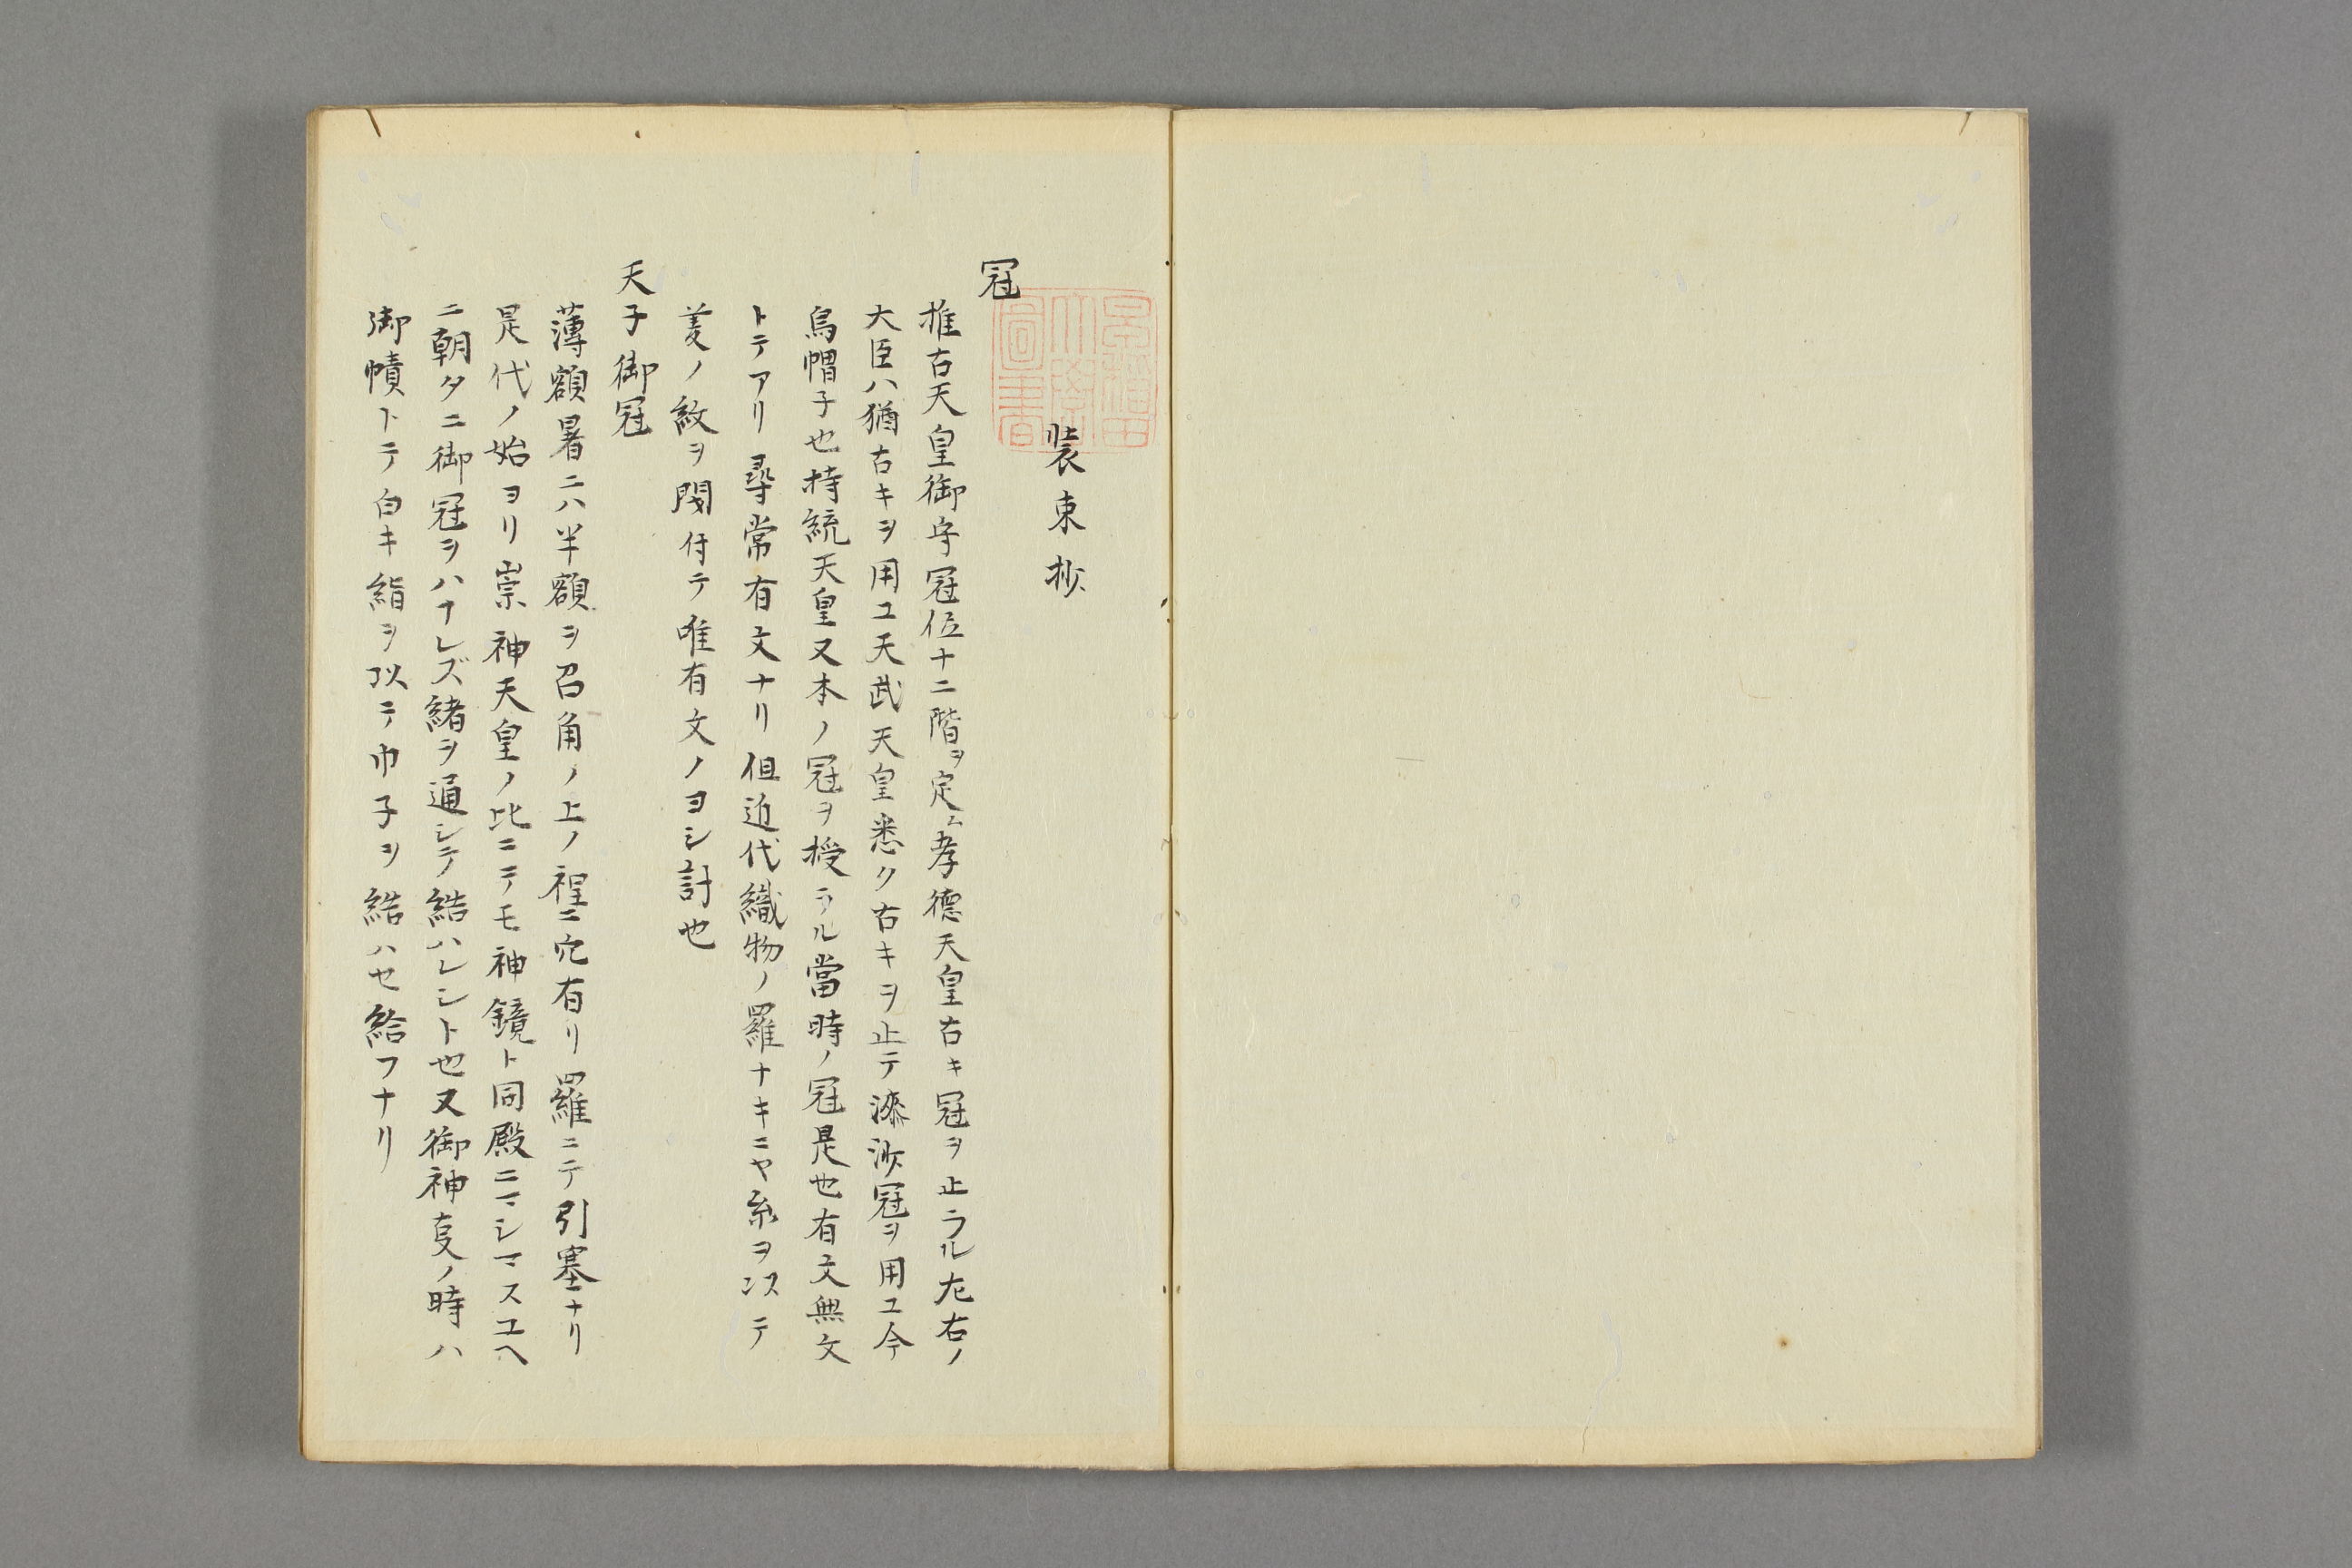 早稲田大學圖書
装束抄
冠
推古天皇御宇冠位十二階ヲ定ム孝德天皇古キ冠ヲ止ラル左右ノ
大臣ハ猶古キヲ用ユ天武天皇悉ク古キヲ止テ漆沙冠ヲ用ユ今
烏帽子也持統天皇又本ノ冠ヲ授ラル當時ノ冠是也有文無文
トテアリ尋常有文ナリ但近代織物ノ羅ナキニヤ糸ヲ以テ
菱ノ紋ヲ閇付テ唯有文ノヨシ計也
天子御冠
薄額暑ニハ半額ヲ召角ノ上ノ裎ニ穴有リ羅ニテ引塞ナリ
是代ノ始ヨリ崇神天皇ノ比ニテモ神鏡ト同殿ニマシマスユヘ
ニ朝夕ニ御冠ヲハナレズ緒ヲ通シテ結ハレシト也又御神叓ノ時ハ
御幘トテ白キ絹ヲ以テ巾子ヲ結ハセ給フナリ